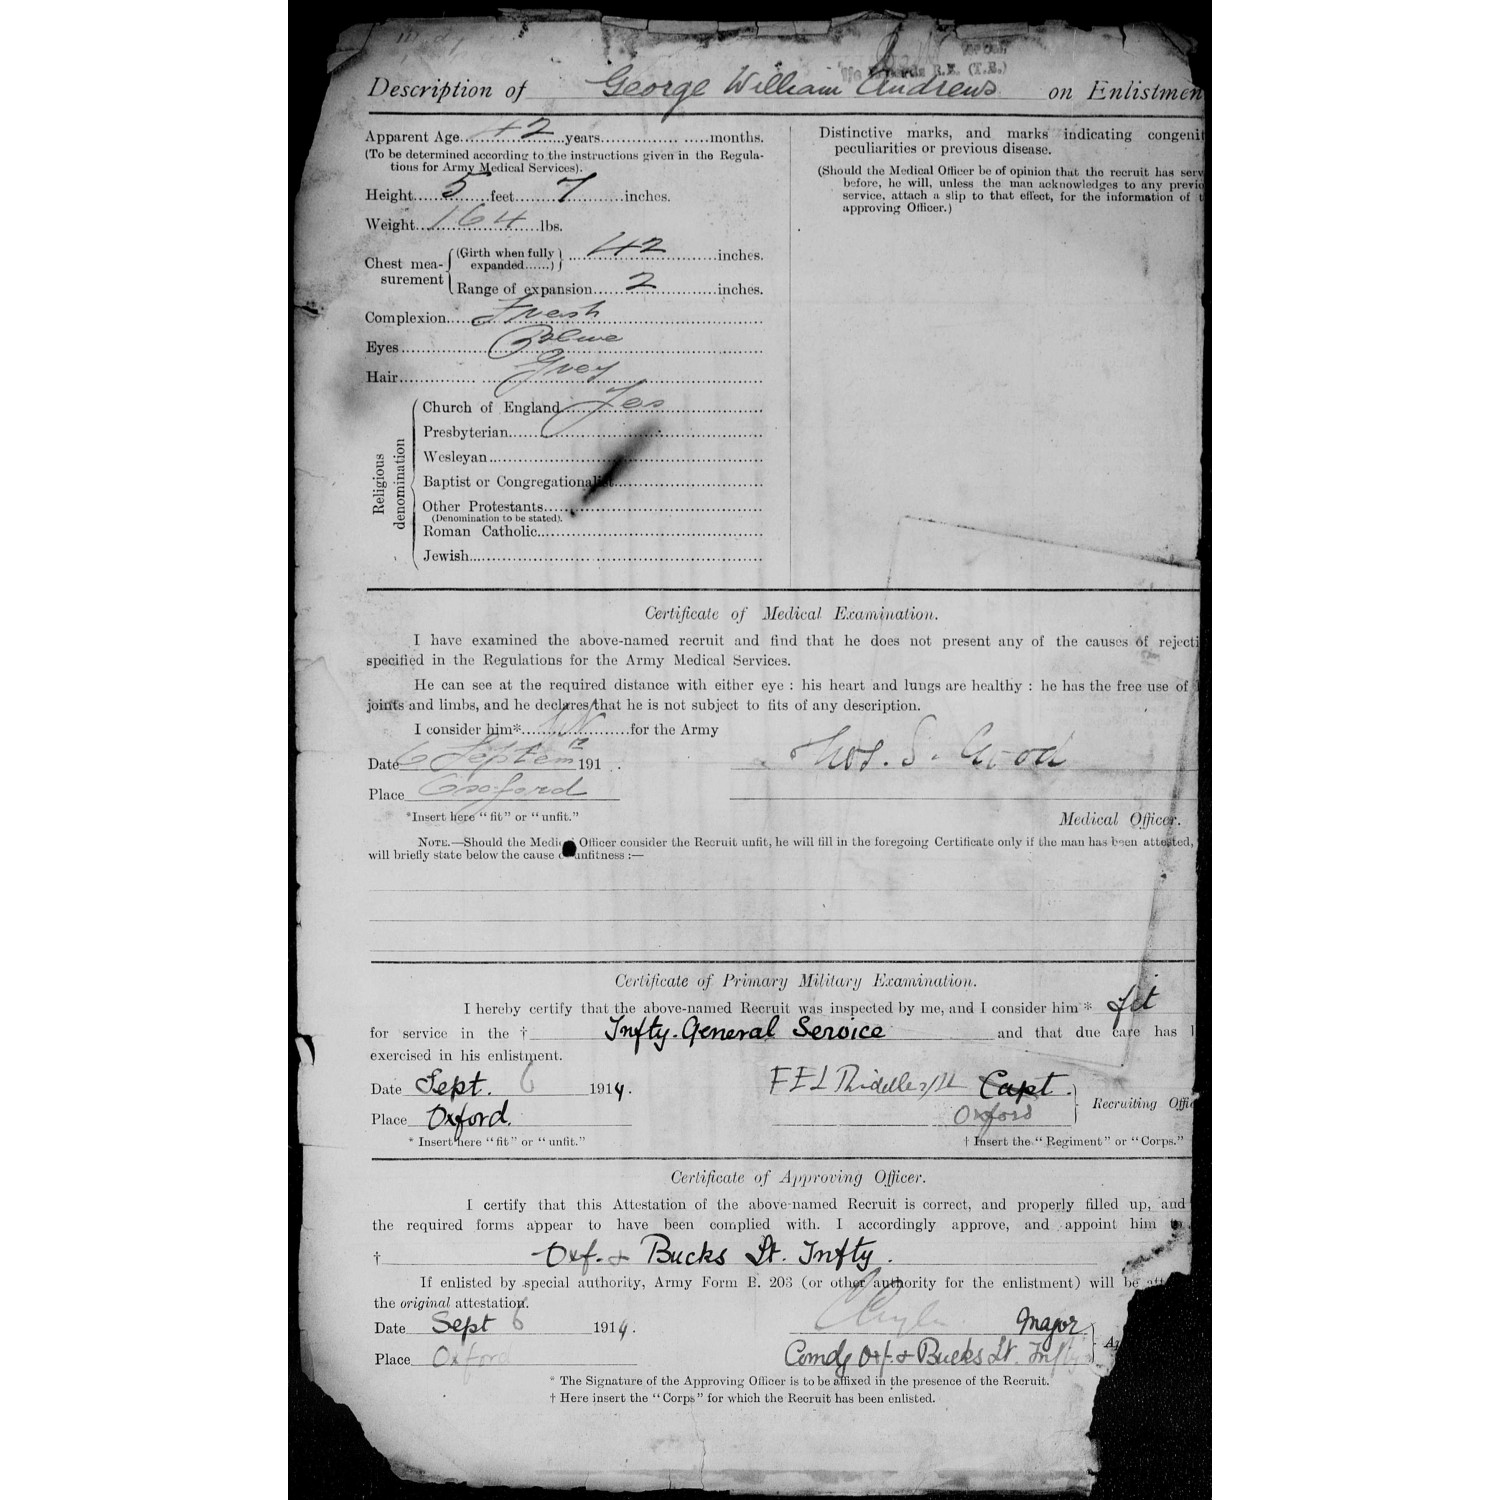 Records R.E. (T.B.)
Description of George William Andrews on Enlistmen
Apparent Age 42 years months.
(To be determined according to the instructions given in the Regula-
tions for Army Medical Services).
Height 5 feet 7 inches.
Weight 164 lbs.
Chest mea-
surement
(Girth when fully
expanded......) 42 inches.
Range of expansion 2 inches.
Complexion Fresh
Eyes Blue
Hair Grey
Religious
denomination
Church of England Yes
Presbyterian
Wesleyan
Baptist or Congregationalist
Other Protestants
(Denomination to be stated).
Roman Catholic
Jewish
Distinctive marks, and marks indicating congenit
peculiarities or previous disease.
(Should the Medical Officer be of opinion that the recruit has serv
before, he will, unless the man acknowledges to any previo
service, attach a slip to that effect, for the information of t
approving Officer.)
Certificate of Medical Examination.
I have examined the above-named recruit and find that he does not present any of the causes of rejecti
specified in the Regulations for the Army Medical Services.
He can see at the required distance with either eye : his heart and lungs are healthy : he has the free use of
joints and limbs, and he declares that he is not subject to fits of any description.
I consider him* fit for the Army
Date 6 Septem 191 .
Place Oxford
Thos. S.
*Insert here "fit" or "unfit."
Medical Officer.
NOTE.—Should the Medical Officer consider the Recruit unfit, he will fill in the foregoing Certificate only if the man has been attested,
will briefly state below the cause of unfitness :—
Certificate of Primary Military Examination.
I hereby certify that the above-named Recruit was inspected by me, and I consider him * fit
for service in the † Infty. General Service and that due care has
exercised in his enlistment.
Date Sept. 6 1914.
Place Oxford.
F E L Capt.
Oxford
Recruiting Offi
* Insert here "fit" or "unfit."
† Insert the "Regiment" or "Corps."
Certificate of Approving Officer.
I certify that this Attestation of the above-named Recruit is correct, and properly filled up, and
the required forms appear to have been complied with. I accordingly approve, and appoint him to
† Oxf. & Bucks Lt. Infty.
If enlisted by special authority, Army Form B. 203 (or other authority for the enlistment) will be att
the original attestation.
Date Sept 6 1914.
Place Oxford
Major
Comdg Oxf. & Bucks Lt. Infty
* The Signature of the Approving Officer is to be affixed in the presence of the Recruit.
† Here insert the "Corps" for which the Recruit has been enlisted.